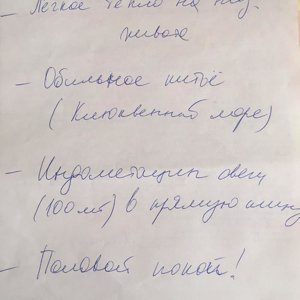 - Легкое тепло на низ
живота
- Обильное питьё
(Клюквенный морс)
- Индометацин свечи
(100мг) в прямую кишку
- Половой покой!